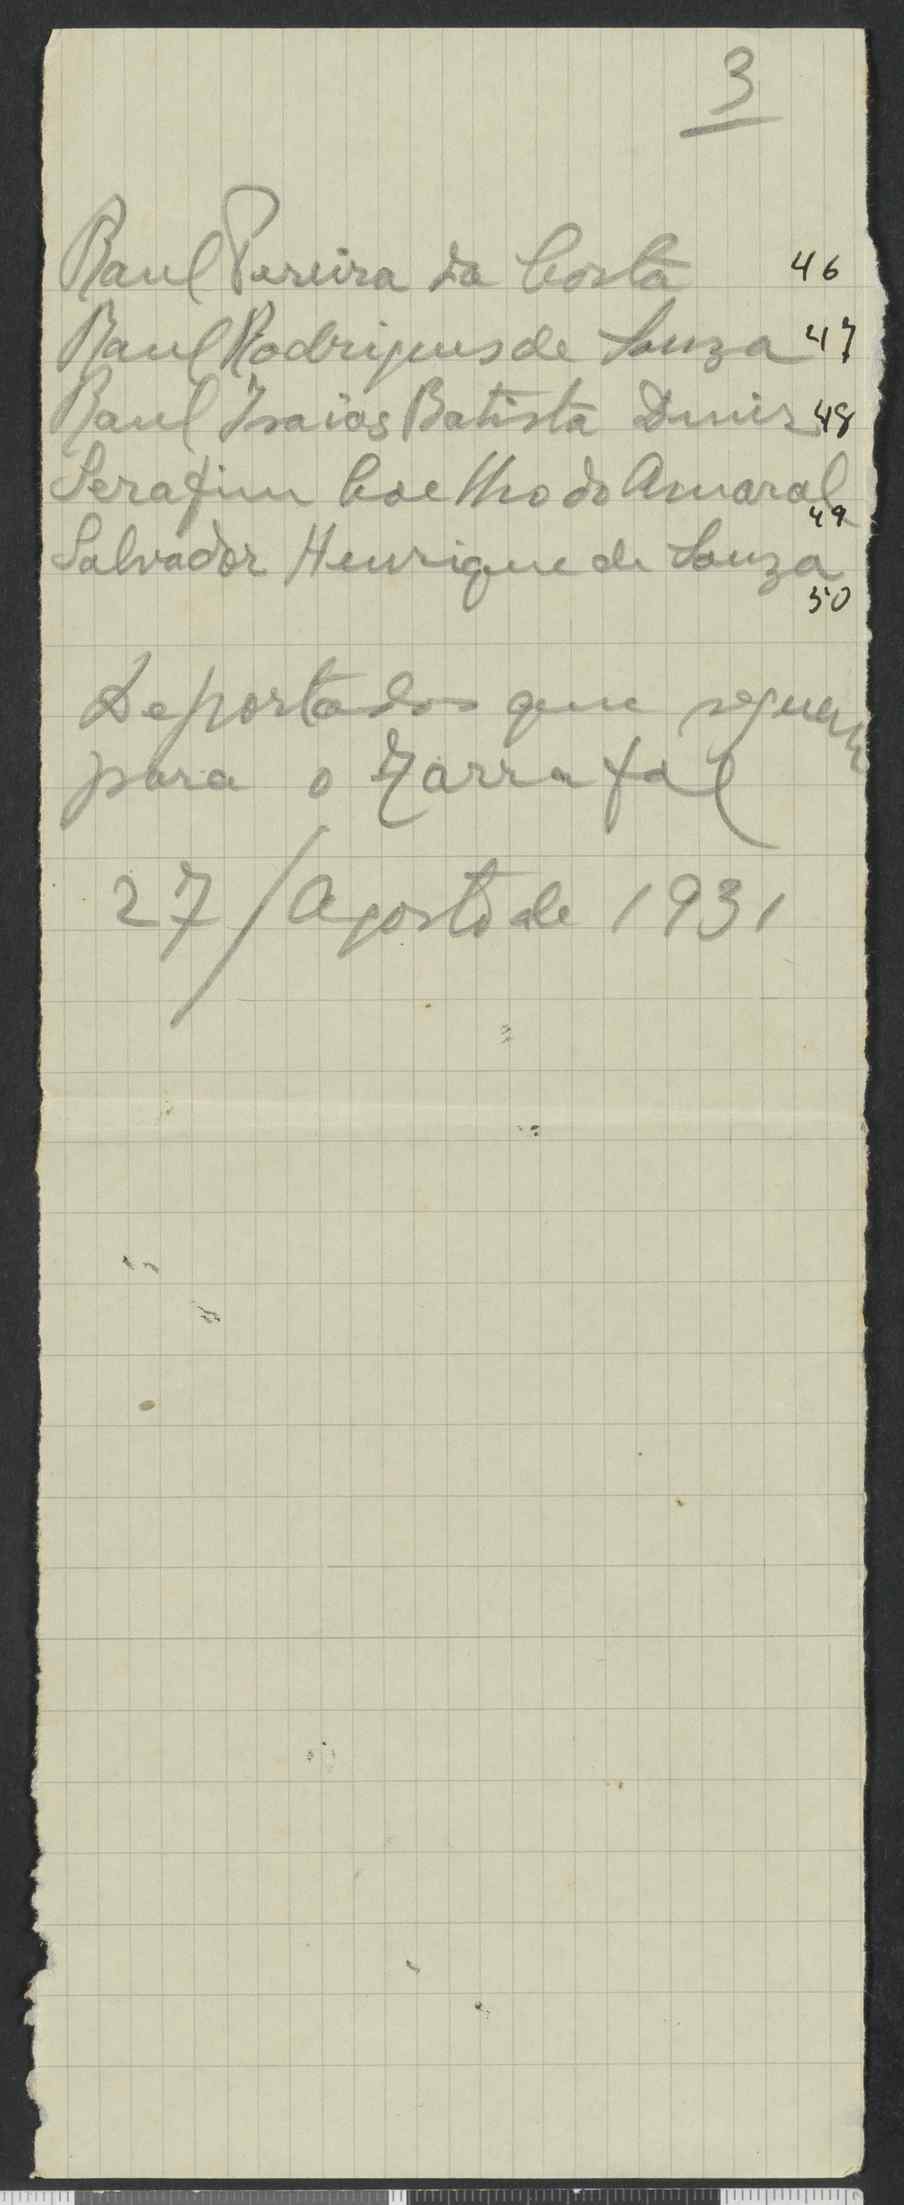 3
Raul Pereira da Costa 46
Raul Rodrigues de Souza 47
Raul Isaias Batista Diniz 48
Serafim Coelho do Amaral
49
Salvador Henrique de Souza
50
Deportados que seguem
para o Tarrafal
27/Agosto de 1931